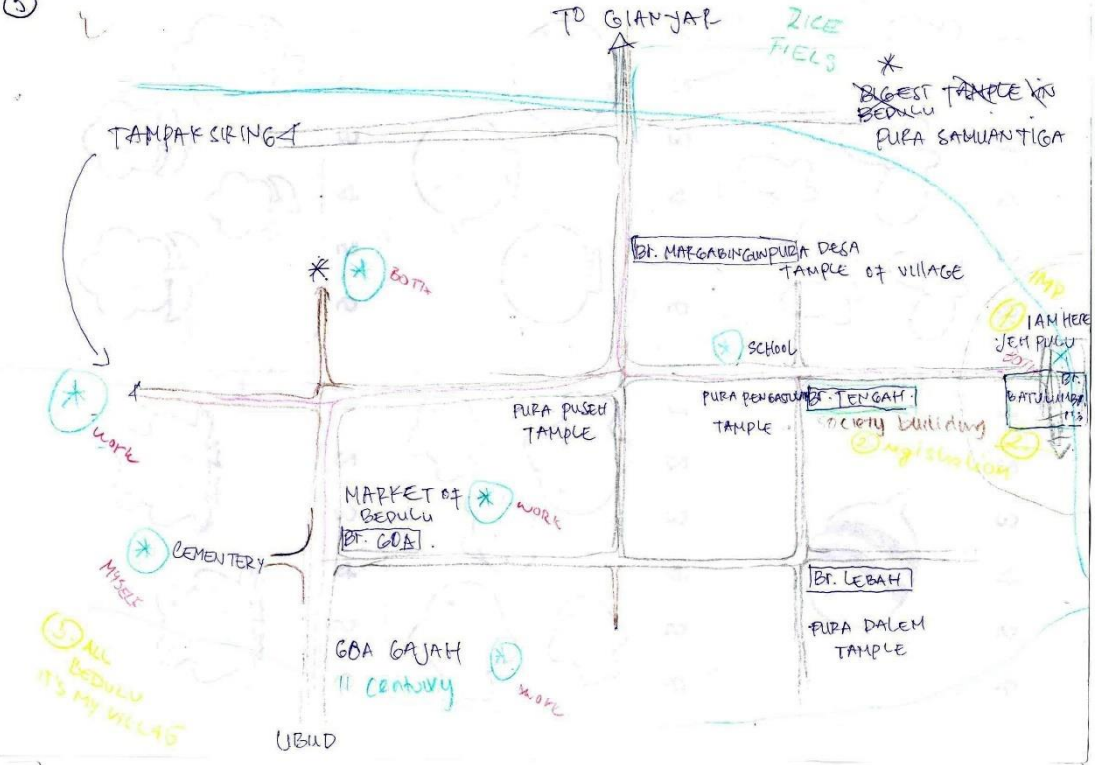 5
TO GIANYAR
RICE
FIELS
*
BIGEST TAMPLE IN
BEDULU
PURA SAMUANTIGA
TAMPAK SIRING
BT. MARGABINGUNPURA DESA
TAMPLE OF VILLAGE
*
* BOTH
IMP
1 I AM HERE
JEH PULU
* SCHOOL
*
WORK
PURA PUSEH
TAMPLE
PURA PENGASTULAN
TAMPLE
BT. TENGAH.
society building
2 registration
BT.
BATULUMBANG
2.
MARKET OF
BEDULU
* WORK
BT. GOA.
* CEMENTERY
MYSELF
BT. LEBAH
PURA DALEM
TAMPLE
GOA GAJAH
11 century
* WORK
3. ALL
BEDULU
IT'S MY VILLAG
UBUD